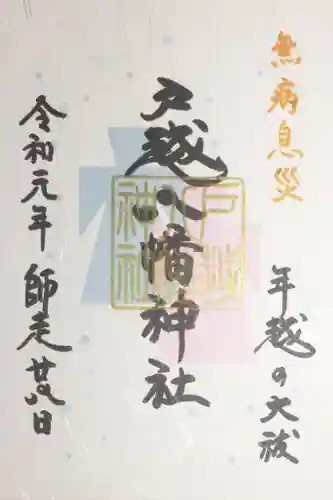 無病息災
年越の大祓
戸越八幡神社
戸越
神社
令和元年 師走廿八日